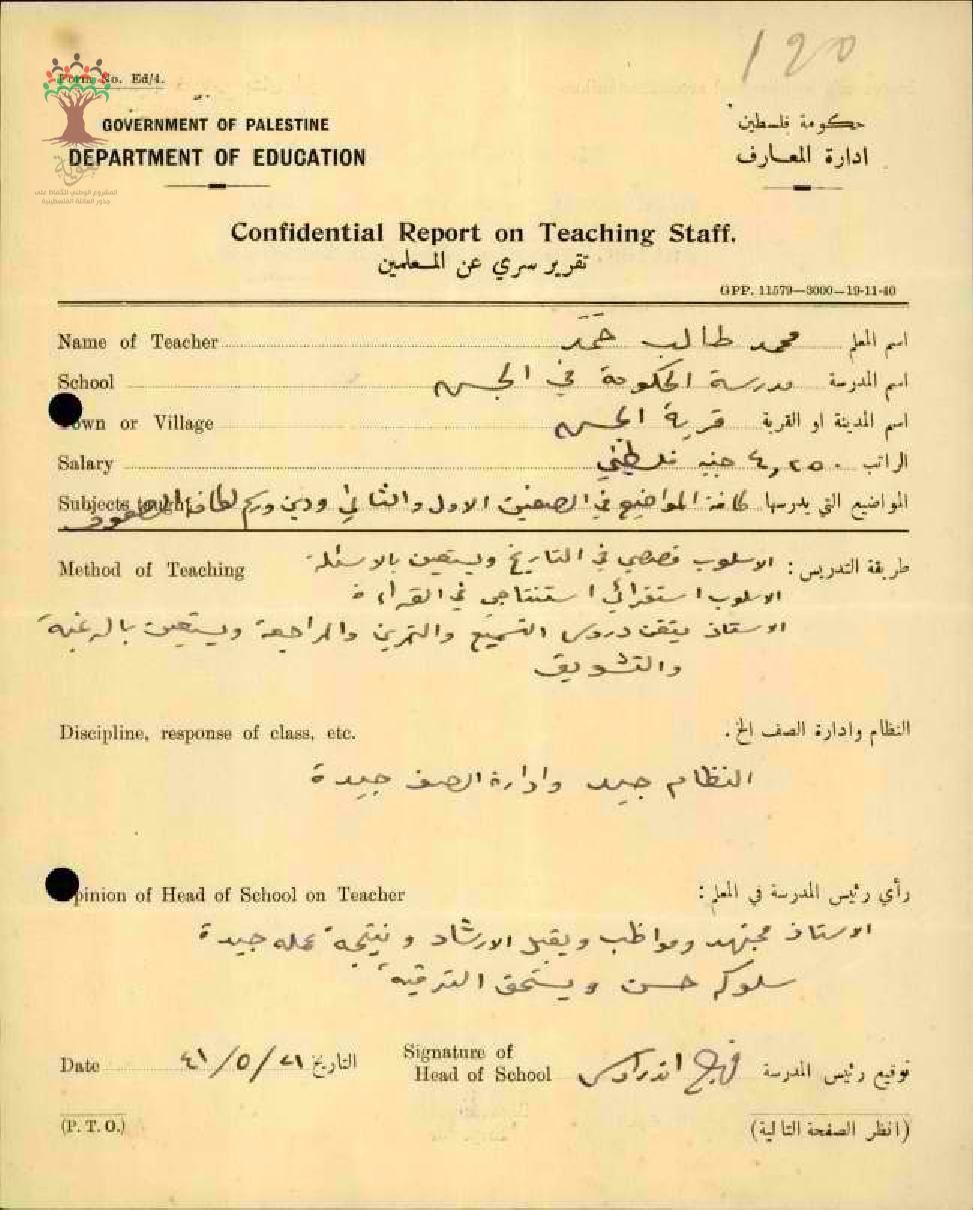 120
Form No. Ed/4.
هوية
المشروع الوطني للحفاظ على
جذور العائلة الفلسطينية
GOVERNMENT OF PALESTINE
حكومة فلسطين
DEPARTMENT OF EDUCATION
ادارة المعارف
Confidential Report on Teaching Staff.
تقرير سري عن المعلمين
GPP. 11579—3000—19-11-40
Name of Teacher محمد طالب حمَد اسم المعلم
School مدرسة الحكومة في اسم المدرسة
Town or Village قرية اسم المدينة او القرية
Salary ٤,٢٥٠ جنيه فلسطيني الراتب
Subjects taught كافة المواضيع في الصفين الاول والثاني ودين ورسم لكافة الصفوف المواضيع التي يدرسها
Method of Teaching الاسلوب قصصي في التاريخ ويستعين بالاسئلة طريقة التدريس :
الاسلوب استقرائي استنتاجي في القراءة
الاستاذ يتقن دروس التسميع والتمرين والمراجعة ويستعين بالرغبة
والتشويق
Discipline, response of class, etc. النظام وادارة الصف الخ.
النظام جيد وادارة الصف جيدة
Opinion of Head of School on Teacher رأي رئيس المدرسة في المعلم :
الاستاذ مجتهد ومواظب ويقبل الارشاد ونتيجة عمله جيدة
سلوكه حسن ويستحق الترقية
Date ٤١/٥/٢١ التاريخ Signature of Head of School توقيع رئيس المدرسة
(P. T. O.) (انظر الصفحة التالية)